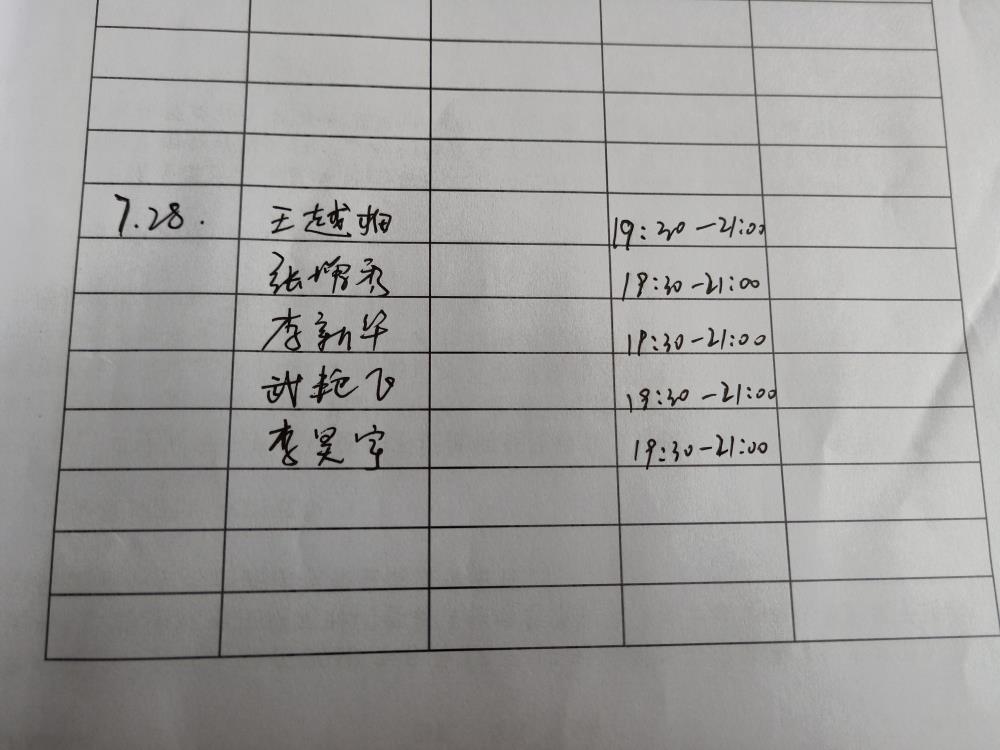 7.28. 王越 19:30-21:00
张增秀 19:30-21:00
李新华 19:30-21:00
武艳飞 19:30-21:00
李昊宇 19:30-21:00